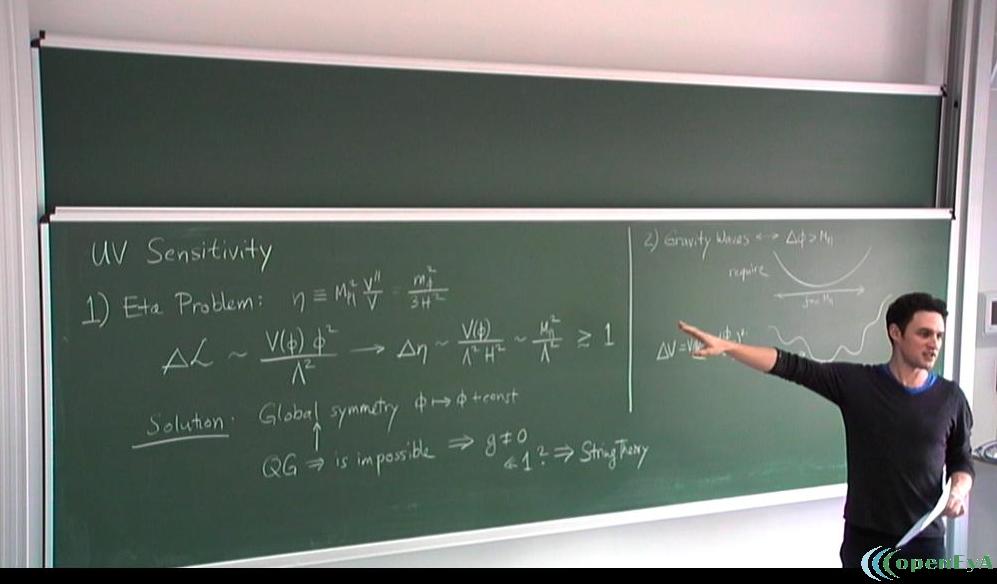 UV Sensitivity
1) Eta Problem: η ≡ M_Pl² V''/V = m_ϕ²/3H²
Δℒ ~ V(ϕ) ϕ²/Λ² → Δη ~ V(ϕ)/Λ² H² ~ M_Pl²/Λ² ≳ 1
Solution: Global symmetry ϕ ↦ ϕ + const
↑
QG ⇒ is impossible ⇒ g ≠ 0
≪ 1 ? ⇒ String Theory
2) Gravity Waves ↔ Δϕ > M_Pl
require
ΔV =
openEyA